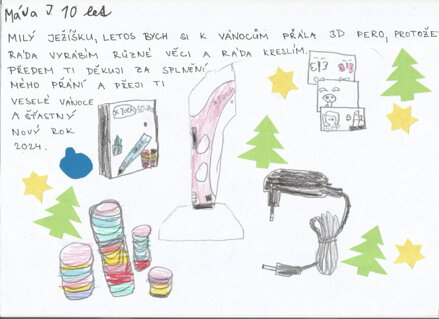 Máva J 10 let
MILÝ JEŽÍŠKU, LETOS BYCH SI K VÁNOCŮM PŘÁLA 3D PERO, PROTOŽE
RÁDA VYRÁBÍM RŮZNÉ VĚCI A RÁDA KRESLÍM.
PŘEDEM TI DĚKUJI ZA SPLNĚNÍ
MÉHO PŘÁNÍ A PŘEJI TI
VESELÉ VÁNOCE
A ŠŤASTNÝ
NOVÝ ROK
2024.